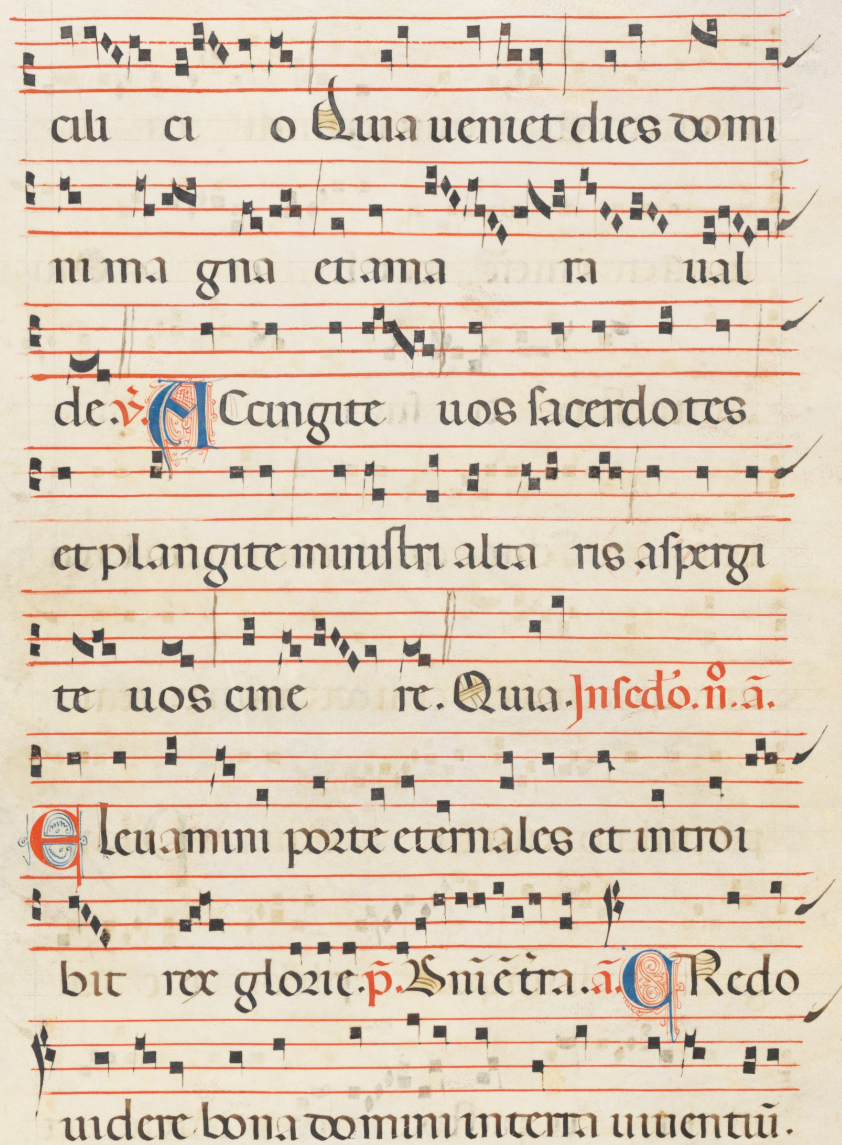 cili ci o Quia ueniet dies domi
ni ma gna et ama ra ual
de. v̄. ACcingite uos sacerdotes
et plangite ministri alta ris aspergi
te uos cine re. Quia. In scd̄o. n̄o. ā.
Eleuamini porte eternales et introi
bit rex glorie. p̄. Dn̄i ē t̄ra. ā. CRedo
uidere bona domini in terra uiuentiū.